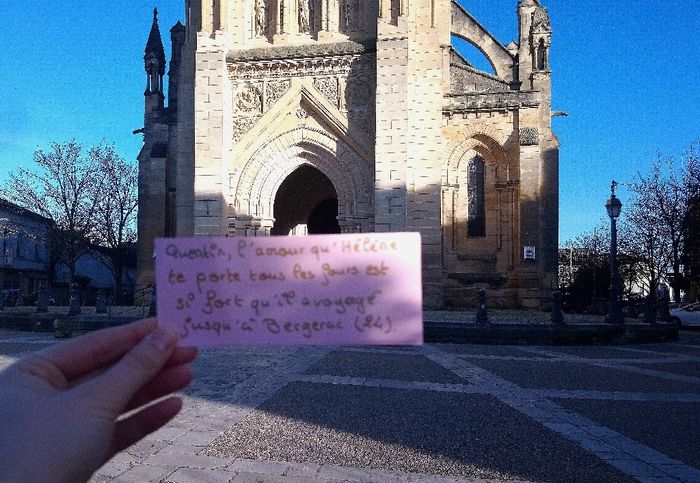 Quentin, l'amour qu'Hélène
te porte tous les jours est
si fort qu'il a voyagé
jusqu'à Bergerac (24).